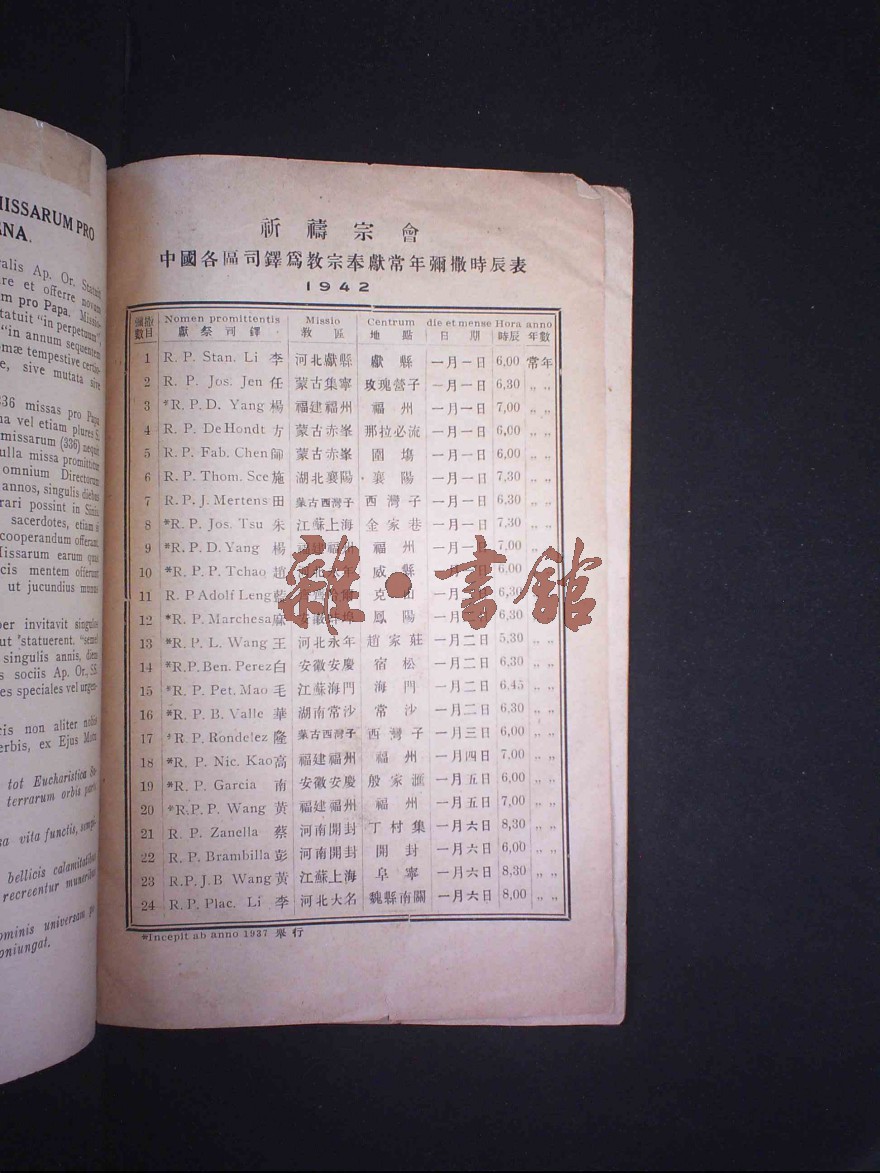 MISSARUM PRO
ANA.
ralis Ap. Or. Statuit
re et offerre novam
m pro Papa. Missio-
tatuit "in perpetuum"
"in annum sequentem
omæ tempestive certio-
e, sive mutata sive
336 missas pro Papa
na vel etiam plures S.
missarum (336) nequit
ulla missa promittitur
omnium Directorum
annos, singulis diebus
rari possint in Sinis
sacerdotes, etiam si
cooperandum offerant
Missarum earum quas
cis mentem offerunt
ut jucundius munus
per invitavit singulos
ut 'statuerent. "semel
singulis annis, diem
s sociis Ap. Or., SS.
es speciales vel urgen-
cis non aliter nobis
erbis, ex Ejus Motu
tot Eucharistica
terrarum orbis
sa vita functis,
bellicis calamitatibus
recreentur muneribus
ominis universam
oniungat.
祈禱宗會
中國各區司鐸爲教宗奉獻常年彌撒時辰表
1942
彌撒數目 Nomen promittentis 獻祭司鐸 Missio 教區 Centrum 地點 die et mense 日期 Hora 時辰 anno 年數
1 R. P. Stan. Li 李 河北獻縣 獻縣 一月一日 6,00 常年
2 R. P. Jos. Jen 任 蒙古集寧 玫瑰營子 一月一日 6,30 ,, ,,
3 *R. P. D. Yang 楊 福建福州 福州 一月一日 7,00 ,, ,,
4 R. P. De Hondt 方 蒙古赤峯 那拉必流 一月一日 6,00 ,, ,,
5 R. P. Fab. Chen 師 蒙古赤峯 圍場 一月一日 6,00 ,, ,,
6 R. P. Thom. Sce 施 湖北襄陽 襄陽 一月一日 7,30 ,, ,,
7 R. P. J. Mertens 田 蒙古西灣子 西灣子 一月一日 6,30 ,, ,,
8 *R. P. Jos. Tsu 朱 江蘇上海 金家巷 一月一日 7,30 ,, ,,
9 *R. P. D. Yang 楊 福建福州 福州 一月一日 7,00 ,, ,,
10 *R. P. P. Tchao 趙 河北永年 威縣 6,00 ,, ,,
11 R. P Adolf Leng 藍 克山 6,30 ,, ,,
12 *R. P. Marchesa 麻 安徽蚌埠 鳳陽 一月二日 6,30 ,, ,,
13 *R. P. L. Wang 王 河北永年 趙家莊 一月二日 5,30 ,, ,,
14 *R.P. Ben. Perez 白 安徽安慶 宿松 一月二日 6,30 ,, ,,
15 *R. P. Pet. Mao 毛 江蘇海門 海門 一月二日 6,45 ,, ,,
16 *R. P. B. Valle 華 湖南常沙 常沙 一月二日 6,30 ,, ,,
17 *R. P. Rondelez 隆 蒙古西灣子 西灣子 一月三日 6,00 ,, ,,
18 *R. P. Nic. Kao 高 福建福州 福州 一月四日 7,00 ,, ,,
19 *R. P. Garcia 南 安徽安慶 殷家滙 一月五日 6,00 ,, ,,
20 *R. P. P. Wang 黃 福建福州 福州 一月五日 7,00 ,, ,,
21 R. P. Zanella 蔡 河南開封 丁村集 一月六日 8,30 ,, ,,
22 R. P. Brambilla 彭 河南開封 開封 一月六日 6,00 ,, ,,
23 R.P. J.B Wang 黃 江蘇上海 阜寧 一月六日 8,30 ,, ,,
24 R. P. Plac. Li 李 河北大名 魏縣南關 一月六日 8,00 ,, ,,
*Incepit ab anno 1937 舉行
雜·書館